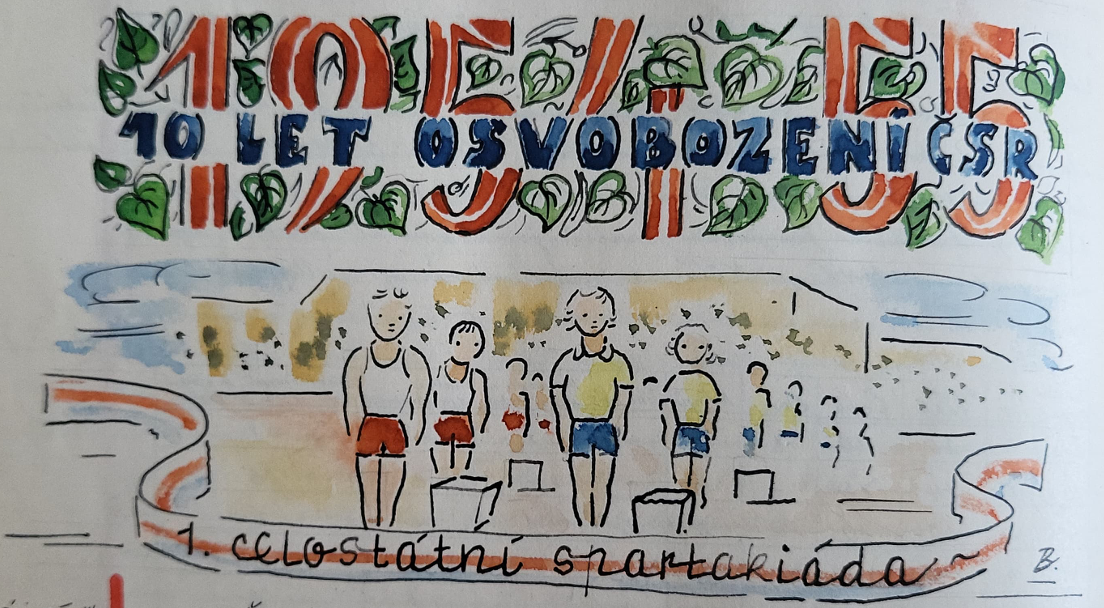 1954 55
10 LET OSVOBOZENÍ ČSR
1. celostátní spartakiáda
B.